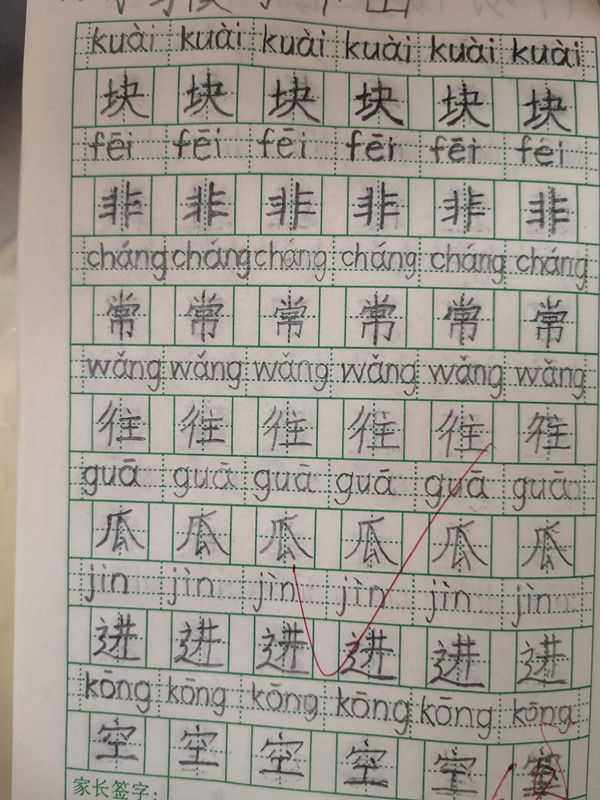 kuài kuài kuài kuài kuài kuài
块 块 块 块 块 块
fēi fēi fēi fēi fēi fēi
非 非 非 非 非 非
cháng cháng cháng cháng cháng cháng
常 常 常 常 常 常
wǎng wǎng wǎng wǎng wǎng wǎng
往 往 往 往 往 往
guā guā guā guā guā guā
瓜 瓜 瓜 瓜 瓜 瓜
jìn jìn jìn jìn jìn jìn
进 进 进 进 进 进
kōng kōng kōng kōng kōng kōng
空 空 空 空 空 空
家长签字: